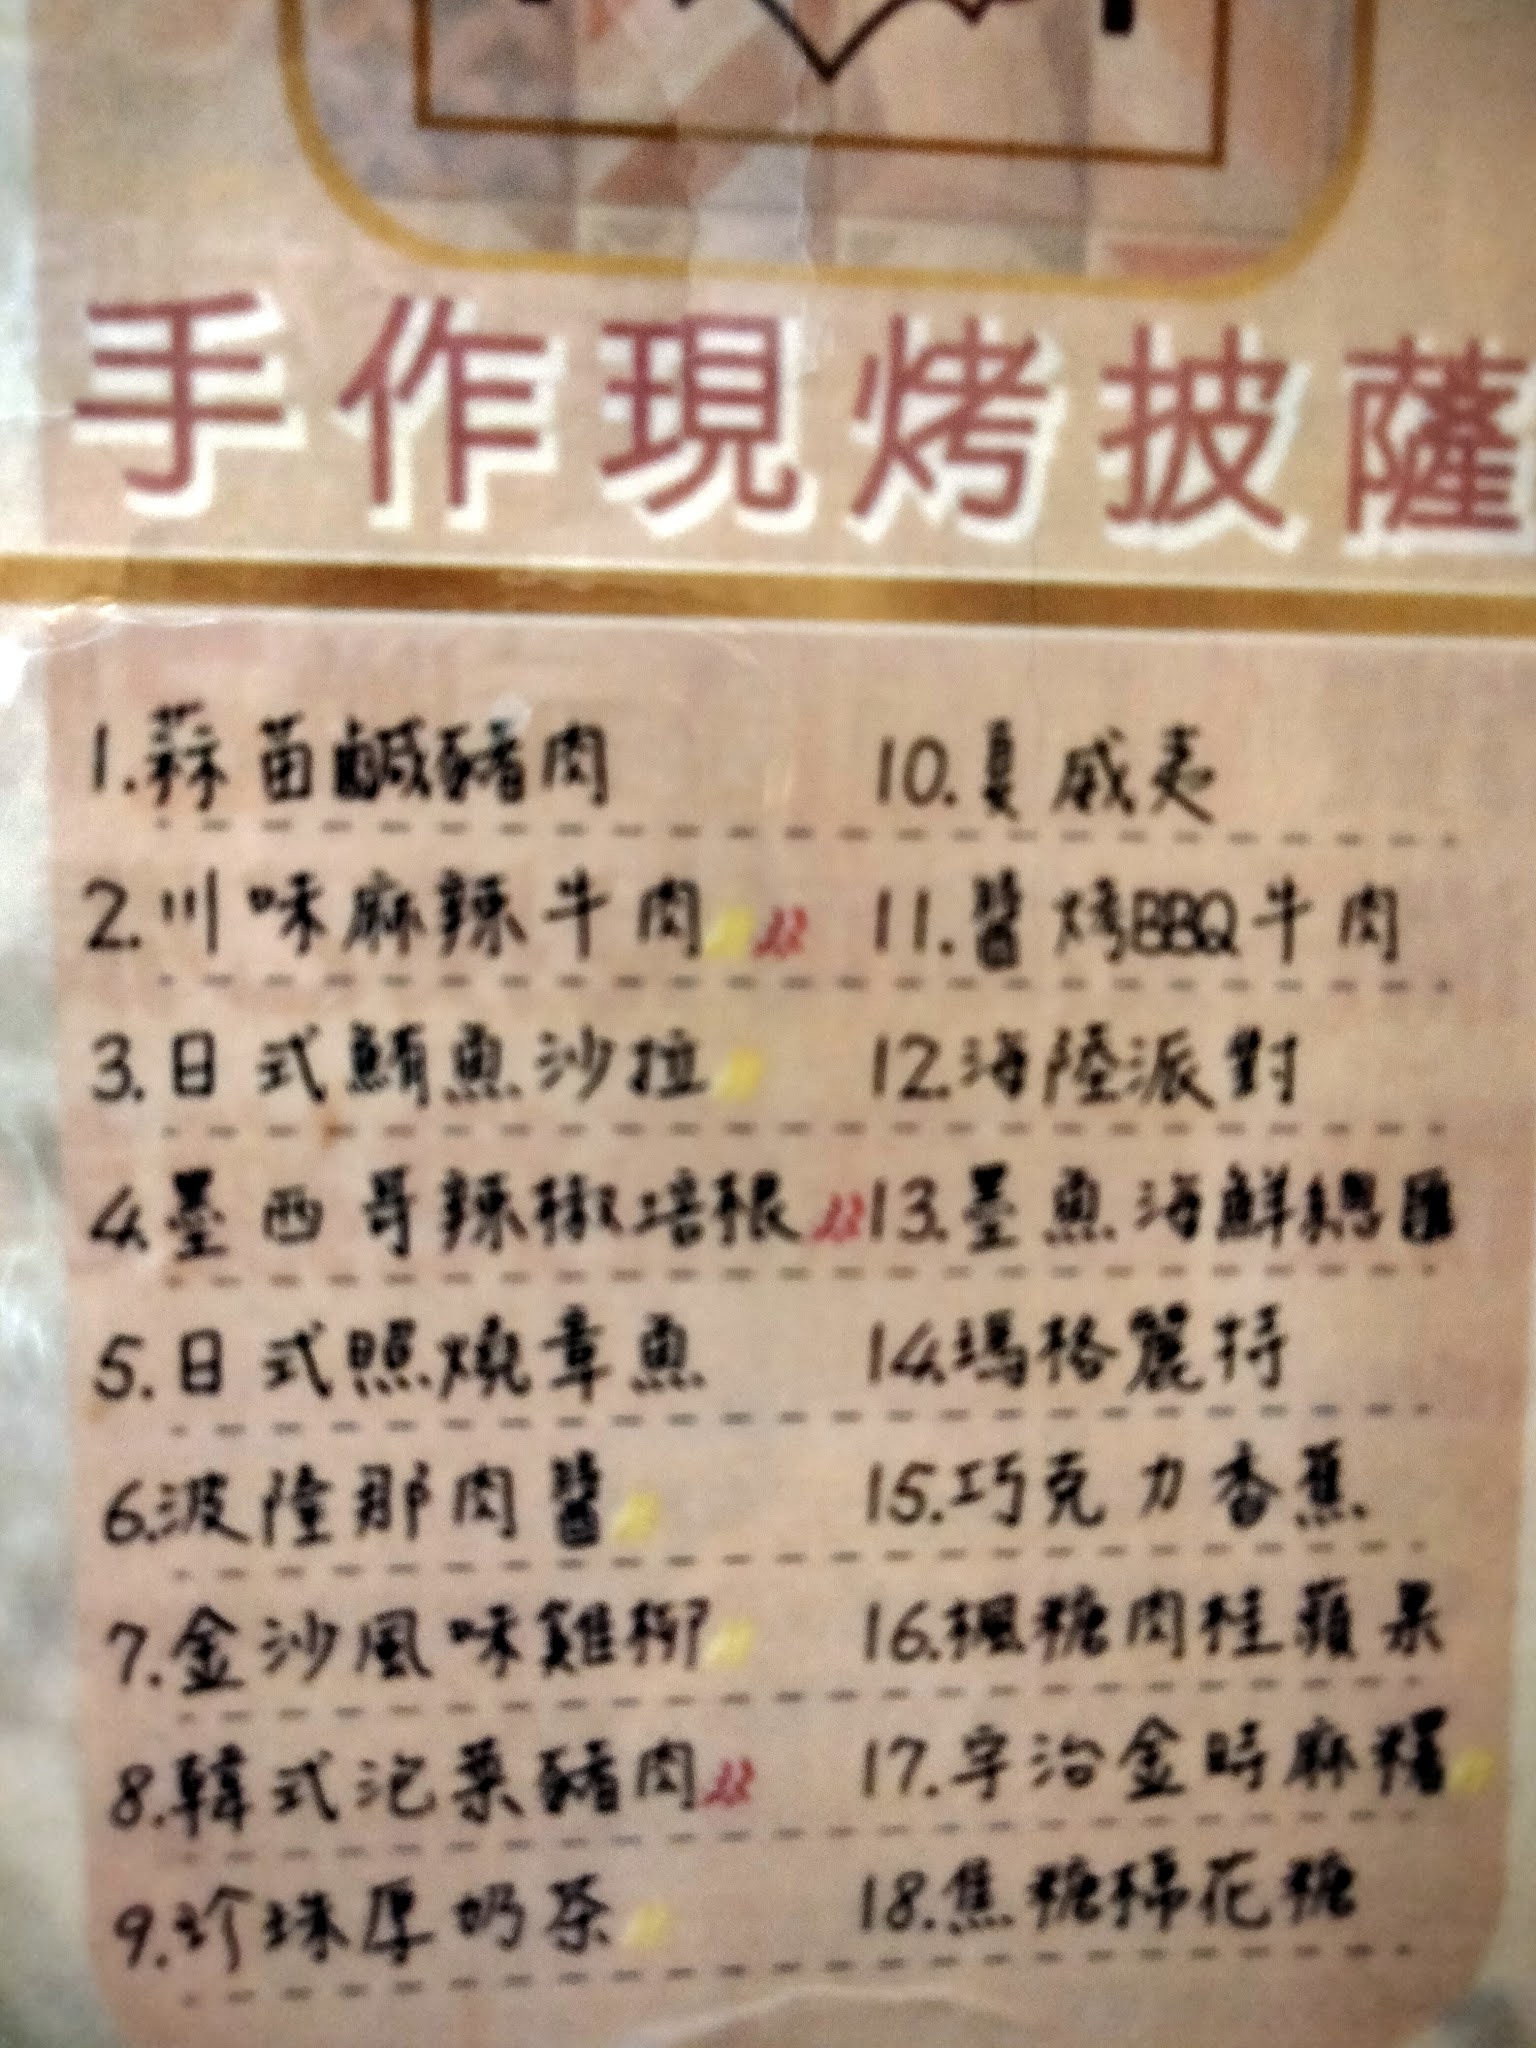 手作現烤披薩
1.蒜苗鹹豬肉
2.川味麻辣牛肉
3.日式鮪魚沙拉
4.墨西哥辣椒培根
5.日式照燒章魚
6.波隆那肉醬
7.金沙風味雞柳
8.韓式泡菜豬肉
9.珍珠厚奶茶
10.夏威夷
11.醬烤BBQ牛肉
12.海陸派對
13.墨魚海鮮總匯
14.瑪格麗特
15.巧克力香蕉
16.楓糖肉桂蘋果
17.宇治金時麻糬
18.焦糖棉花糖